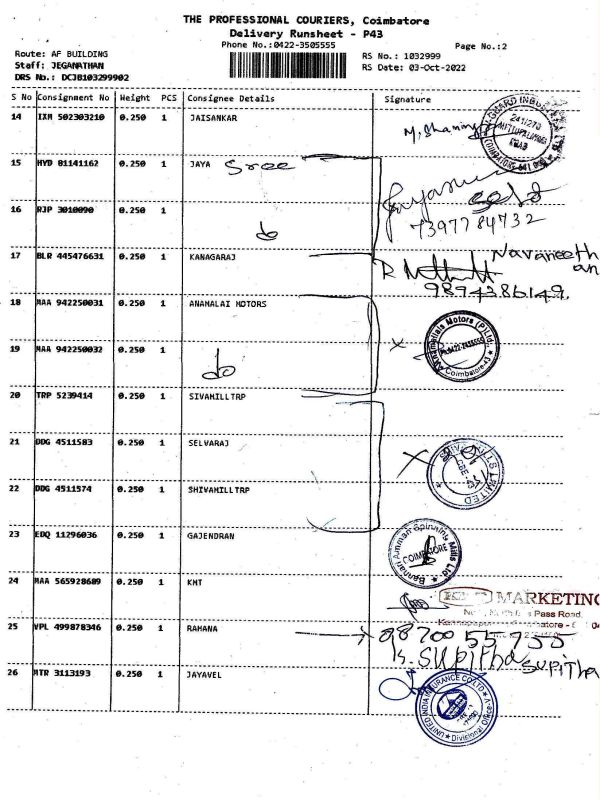 THE PROFESSIONAL COURIERS, Coimbatore
Delivery Runsheet - P43
Phone No.:0422-3505555 Page No.:2
Route: AF BUILDING RS No. : 1032999
Staff: JEGANATHAN RS Date: 03-Oct-2022
DRS No.: DCJB103299902
S No Consignment No Weight PCS Consignee Details Signature
14 IXM 502303210 0.250 1 JAISANKAR
15 HYD 81141162 0.250 1 JAYA Sree
16 RJP 3010090 0.250 1 do
7397784732
17 BLR 445476631 0.250 1 KANAGARAJ Navaneethan
9894386149
18 MAA 942250031 0.250 1 ANAMALAI MOTORS
19 MAA 942250032 0.250 1 do
Annamallais Motors (P) Ltd.
Coimbatore-43
20 TRP 5239414 0.250 1 SIVAHILLTRP
21 DDG 4511583 0.250 1 SELVARAJ
22 DDG 4511574 0.250 1 SHIVAHILLTRP
23 EDQ 11296036 0.250 1 GAJENDRAN
Bannari Amman Spinning Mills Ltd
COIMBATORE
24 MAA 565928689 0.250 1 KMT
MARKETING
Pass Road
25 VPL 499878346 0.250 1 RAHANA 9870055955
Supitha SUPITHA
26 MTR 3113193 0.250 1 JAYAVEL
UNITED INDIA INSURANCE CO LTD
Divisional Office